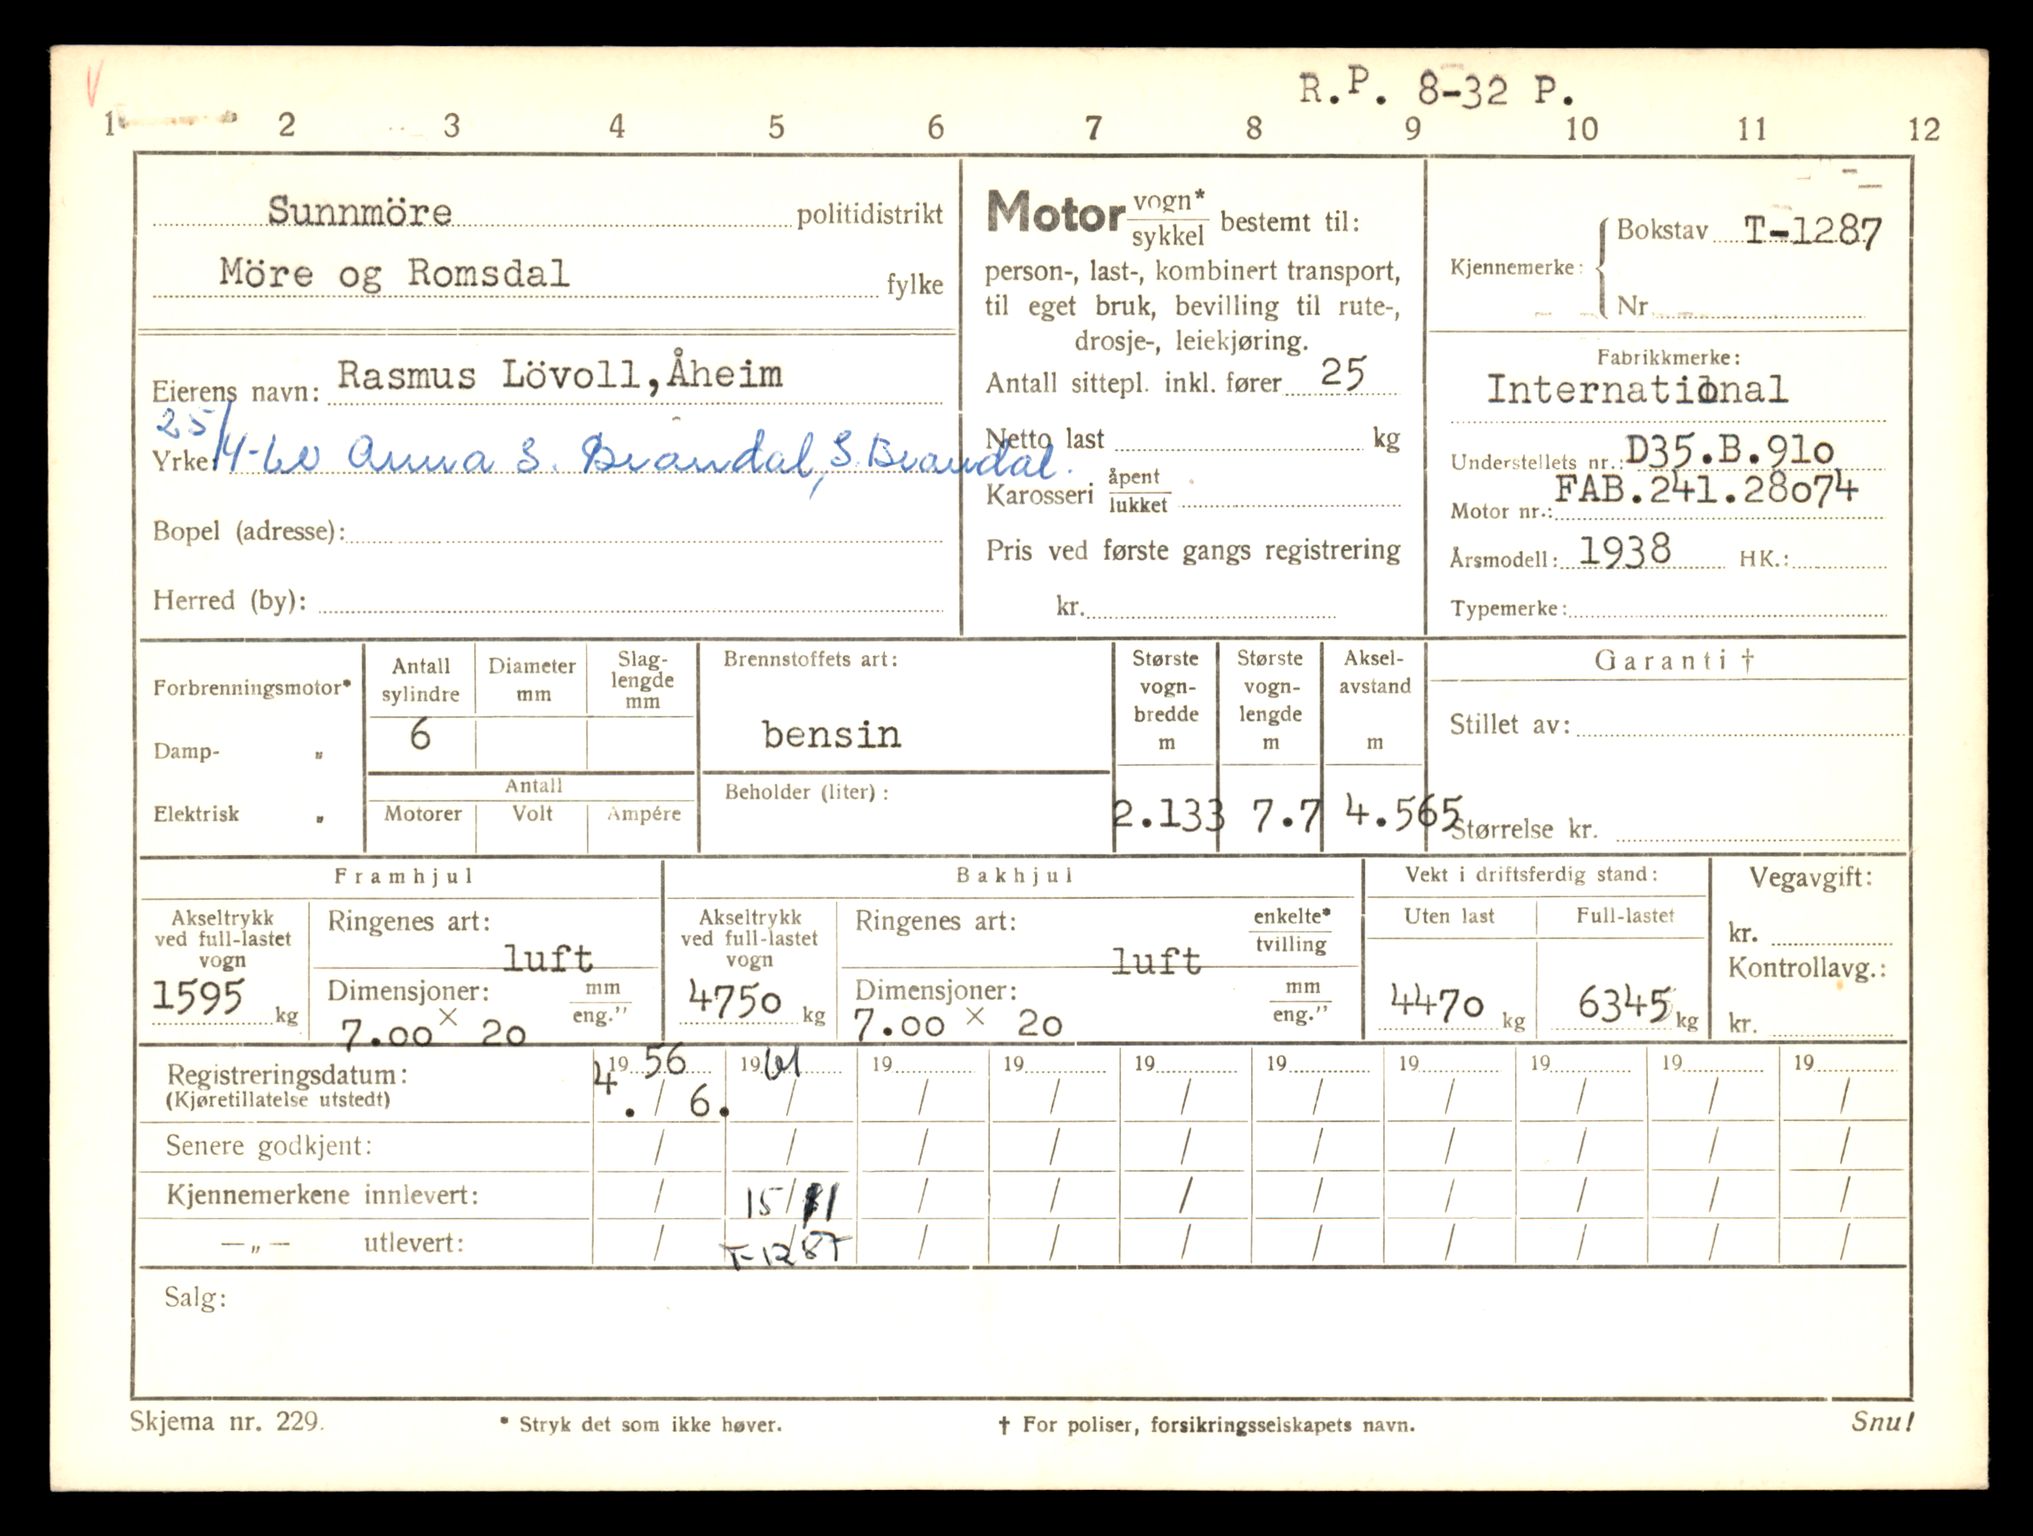 R.P. 8-32 P.
1 2 3 4 5 6 7 8 9 10 11 12
Sunnmöre politidistrikt
Möre og Romsdal fylke
Eierens navn: Rasmus Lövoll, Åheim
25/4-60 Anna S. Brandal, S. Brandal.
Yrke:
Bopel (adresse):
Herred (by):
Motor vogn* / sykkel bestemt til:
person-, last-, kombinert transport,
til eget bruk, bevilling til rute-,
drosje-, leiekjøring.
Antall sittepl. inkl. fører 25
Netto last kg
Karosseri åpent / lukket
Pris ved første gangs registrering
kr.
Kjennemerke: Bokstav T-1287
Nr
Fabrikkmerke:
International
Understellets nr.: D35.B.91o
FAB.241.28o74
Motor nr.:
Årsmodell: 1938 HK.:
Typemerke:
Forbrenningsmotor*
Damp- "
Elektrisk "
Antall sylindre
6
Diameter mm
Slag-
lengde
mm
Antall
Motorer Volt Ampére
Brennstoffets art:
bensin
Beholder (liter):
Største
vogn-
bredde
m
2.133
Største
vogn-
lengde
m
7.7
Aksel-
avstand
m
4.565
Garanti †
Stillet av:
Størrelse kr.
Framhjul
Akseltrykk
ved full-lastet
vogn
1595 kg
Ringenes art:
luft
Dimensjoner: mm / eng."
7.oo × 2o
Bakhjul
Akseltrykk
ved full-lastet
vogn
475o kg
Ringenes art: enkelte* / tvilling
luft
Dimensjoner: mm / eng."
7.oo × 2o
Vekt i driftsferdig stand:
Uten last Full-lastet
447o kg 6345 kg
Vegavgift:
kr.
Kontrollavg.:
kr.
Registreringsdatum: 19 56 19 61 19 19 19 19 19 19 19 19
(Kjøretillatelse utstedt) 4. / 6. / / / / / / / / /
Senere godkjent: / / / / / / / / / /
Kjennemerkene innlevert: / 15/11 / / / / / / / /
— " — utlevert: / T-1287 / / / / / / / /
Salg:
Skjema nr. 229. * Stryk det som ikke høver. † For poliser, forsikringsselskapets navn. Snu!